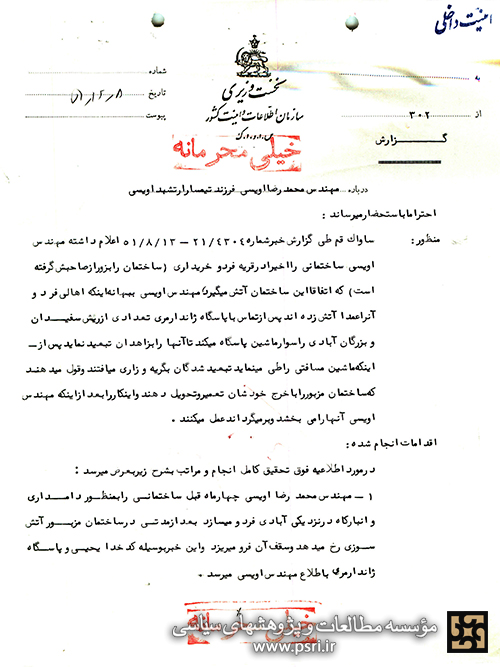 امنیت داخلی
نخست وزیری
سازمان اطلاعات و امنیت کشور
س.ا.و.ا.ک
به
از ۳۰۲
شماره
تاریخ
پیوست
خیلی محرمانه
گزارش
درباره ... مهندس محمد رضا اویسی - فرزند تیمسار ارتشبد اویسی
احتراما باستحضار میرساند :
منظور : ساواک قم طی گزارش خبر شماره ۲۱/۴۳۰۴ - ۵۱/۸/۱۳ اعلام داشته مهندس
اویسی ساختمانی را اخیرا در قریه فردو خریداری (ساختمان را بزور از صاحبش گرفته
است) که اتفاقا این ساختمان آتش میگیرد مهندس اویسی ببهانه اینکه اهالی فردو
آنرا عمدا آتش زده اند پس از تماس با پاسگاه ژاندارمری تعدادی از ریش سفیدان و
بزرگان آبادی را سوار ماشین پاسگاه میکند تا آنها را بزاهدان تبعید نماید پس از -
اینکه ماشین مسافتی را طی مینماید تبعید شدگان بگریه و زاری میافتند و قول میدهند
که ساختمان مزبور را با خرج خودشان تعمیر و تحویل دهند و اینکار را بعد از اینکه مهندس
اویسی آنها را می بخشد و برمیگرداند عمل میکنند .
اقدامات انجام شده :
در مورد اطلاعیه فوق تحقیق کامل انجام و مراتب بشرح زیر بعرض میرسد :
۱ - مهندس محمد رضا اویسی چهار ماه قبل ساختمانی را بمنظور دامداری
و انبار کاه در نزدیکی آبادی فردو میسازد بعد از مدتی در ساختمان مزبور آتش
سوزی رخ میدهد و سقف آن فرو میریزد و این خبر بوسیله کدخدا یحیی و پاسگاه
ژاندارمری باطلاع مهندس اویسی میرسد .
خیلی محرمانه
مؤسسه مطالعات و پژوهشهای سیاسی
www.psri.ir